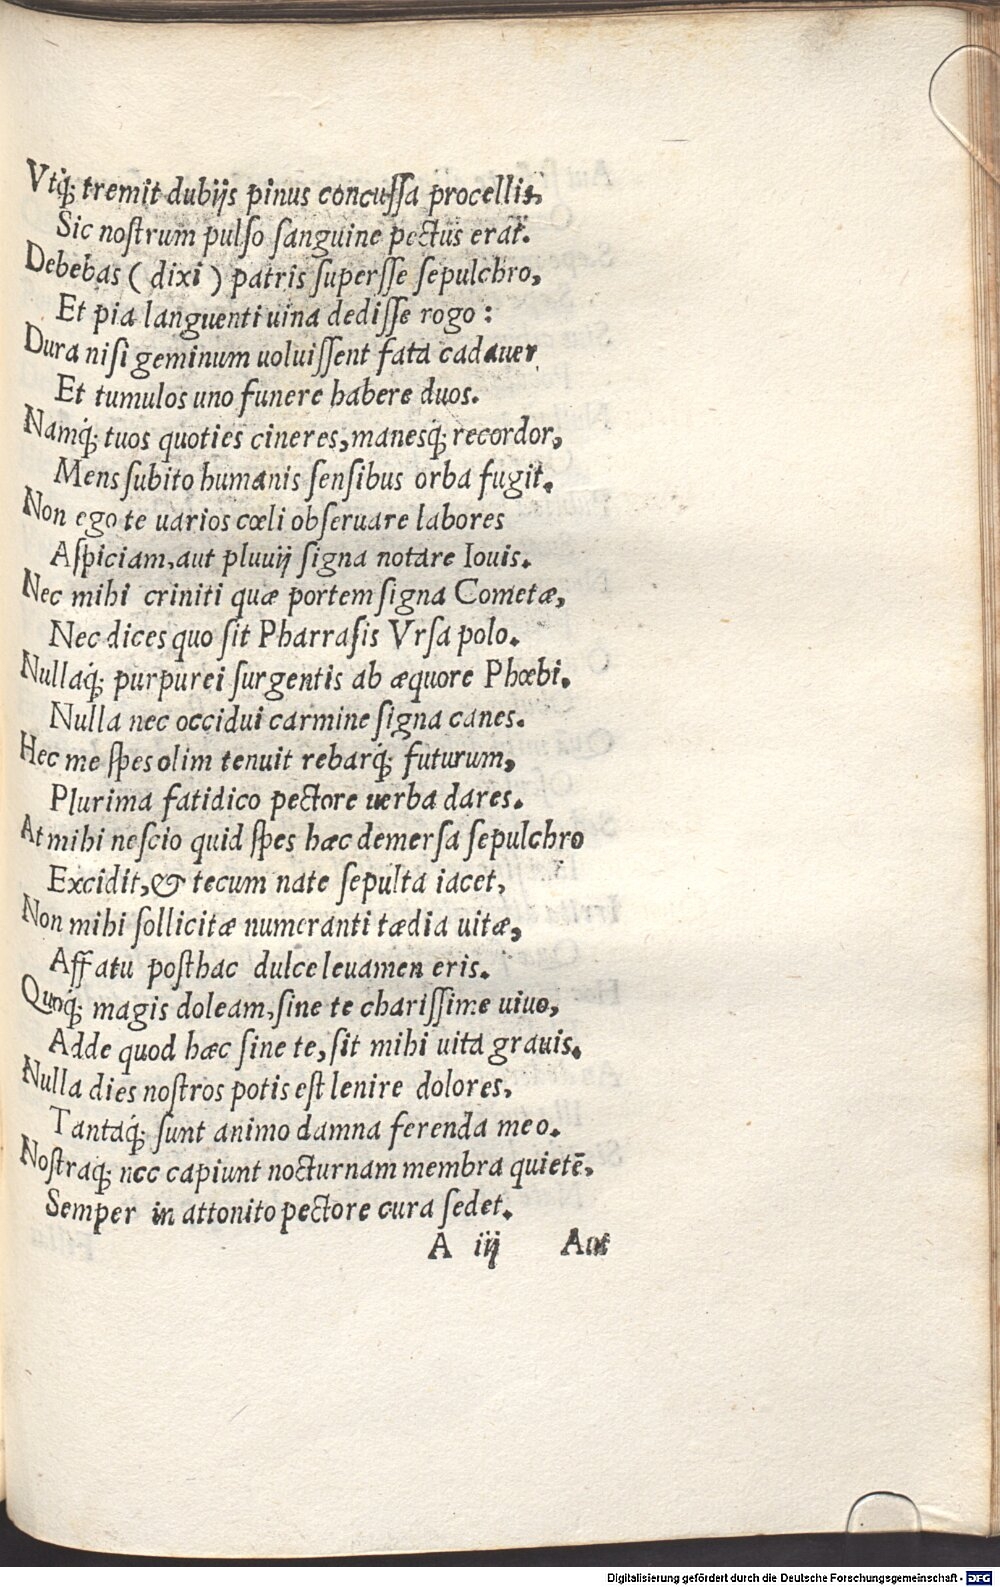 Vtq́; tremit dubijs pinus concuſſa procellis,
Sic noſtrum pulſo ſanguine pectus erat.
Debebas ( dixi ) patris ſuperſſe ſepulchro,
Et pia languenti uina dediſſe rogo :
Dura niſi geminum uoluiſſent fata cadauer,
Et tumulos uno funere habere duos.
Namq́; tuos quoties cineres, manesq́; recordor,
Mens ſubito humanis ſenſibus orba fugit.
Non ego te uarios cœli obſeruare labores
Aſpiciam, aut pluuij ſigna notare Iouis.
Nec mihi criniti quæ portem ſigna Cometæ,
Nec dices quo ſit Pharraſis Vrſa polo.
Nullaq́; purpurei ſurgentis ab æquore Phœbi.
Nulla nec occidui carmine ſigna canes.
Hec me ſpes olim tenuit rebarq́; futurum,
Plurima fatidico pectore uerba dares.
At mihi neſcio quid ſpes hæc demerſa ſepulchro
Excidit, & tecum nate ſepulta iacet,
Non mihi ſollicitæ numeranti tædia uitæ,
Affatu poſthac dulce leuamen eris.
Quoq́; magis doleam, ſine te chariſſime uiuo,
Adde quod hæc ſine te, ſit mihi uita grauis.
Nulla dies noſtros potis eſt lenire dolores,
Tantaq́; ſunt animo damna ferenda meo.
Noſtraq́; nec capiunt nocturnam membra quietē,
Semper in attonito pectore cura ſedet.
A iij Aut
Digitalisierung gefördert durch die Deutsche Forschungsgemeinschaft - DFG